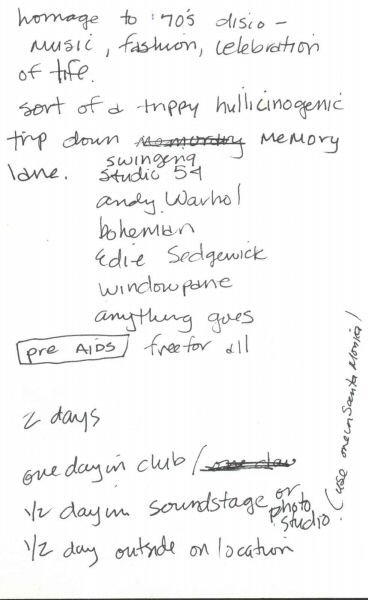 homage to '70's disco -
music, fashion, celebration
of life.
sort of a trippy hullicinogenic
trip down memory
lane.
swinging
studio 54
andy Warhol
bohemian
Edie Sedgewick
windowpane
anything goes
pre AIDS free for all
2 days
one day in club /
1/2 day in soundstage or
photo
studio. (use one in Santa Monica!
1/2 day outside on location